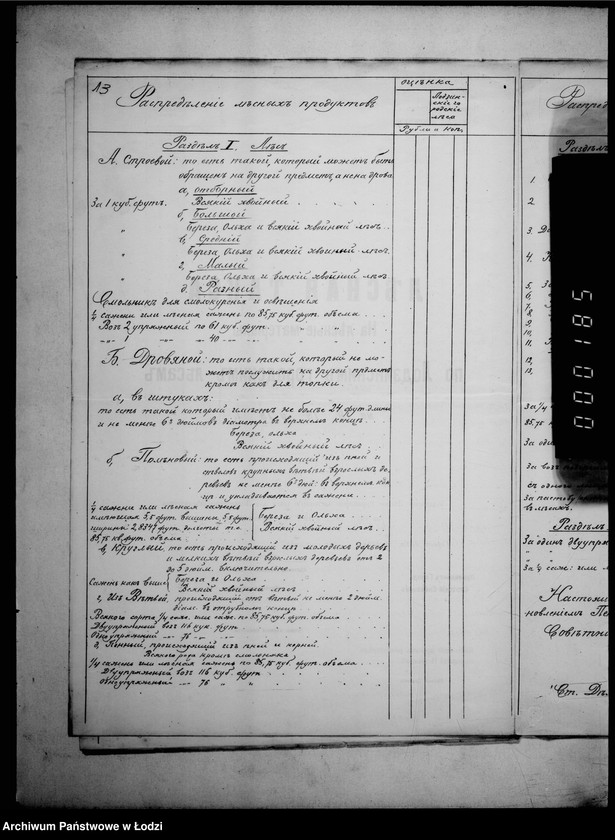 13
Распредѣленіе лѣсныхъ продуктовъ
оцѣнка
Рубли и Коп.
Раздѣлъ I, Лѣсъ
А. Строевой: то есть такой, который можетъ быть
обращенъ на другой предметъ, а не на дрова
а, отборный
За 1 куб. футъ. Всякій хвойный
б, Большой
" Береза, Ольха и всякій хвойный лѣсъ
в, Средній
" Береза, Ольха и всякій хвойный лѣсъ
г, Малый
" Береза, Ольха и всякій хвойный лѣсъ
д, Разный
Смольникъ для смолокуренія и освѣщенія
1/4 сажени или лѣсная сажень по 85,75 куб. фут. объема
Возъ 2 упряжный по 61 куб. фут.
1 40
Б. Дровяной: то есть такой, который не мо-
жетъ послужить на другой предметъ
кромѣ какъ для топки.
а, въ штукахъ:
то есть такой который имѣетъ не болѣе 24 фут. длины
и не менѣе 6 дюймовъ діаметра въ верхнемъ концѣ
Береза, ольха
Всякій хвойный лѣсъ
б, Полѣновый: то есть происходящій изъ пней и
стволовъ крупныхъ вѣтвей взрослыхъ де-
ревьевъ не менѣе 6 дюй: въ верхнемъ кон-
цѣ и укладывается въ сажени.
1/4 сажени или лѣсная сажень
имѣющая 5,5 фут. вышины, 5,5 фут.
ширины 2,8347 фут. долготы т. е.
85,75 кв. фут. объема
Береза и Ольха
Всякій хвойный лѣсъ
в, Круглый, то есть происходящій изъ молодыхъ деревьевъ
и мелкихъ вѣтвей взрослыхъ деревьевъ отъ 2
до 5 дюйм. включительно
Сажень какъ выше
Береза и Ольха
Всякій хвойный лѣсъ
г, Изъ Вѣтвей, происходящій отъ вѣтвей не менѣе 2 дюйм.
діам. въ отрубномъ концѣ
Всякаго сорта 1/4 саж. или саж. по 85,75 куб. фут. объема
Двуупряжный возъ 116 куб. фут.
Одноупряжный 76
д, Пенный, происходящій изъ пней и корней.
Всякаго рода кромѣ смольника
1/4 сажени или лѣсная сажень по 85,75 куб. фут. объема
Двуупряжный возъ 116 куб. фут.
Одноупряжный 76 "
Распред
Раздѣлъ
1.
2
3.
4.
5.
6.
7.
8.
9.
10.
11.
12.
13.
За 1/4
85,75 к
За оди
За возъ
съ одного
За пастьбу
въ лѣсахъ.
Раздѣлъ
За одинъ двуупр
За 1/4 саж: или л
Настоя
новленіемъ Пе
Совѣтни
"Ст. Дѣ
000185
Archiwum Państwowe w Łodzi